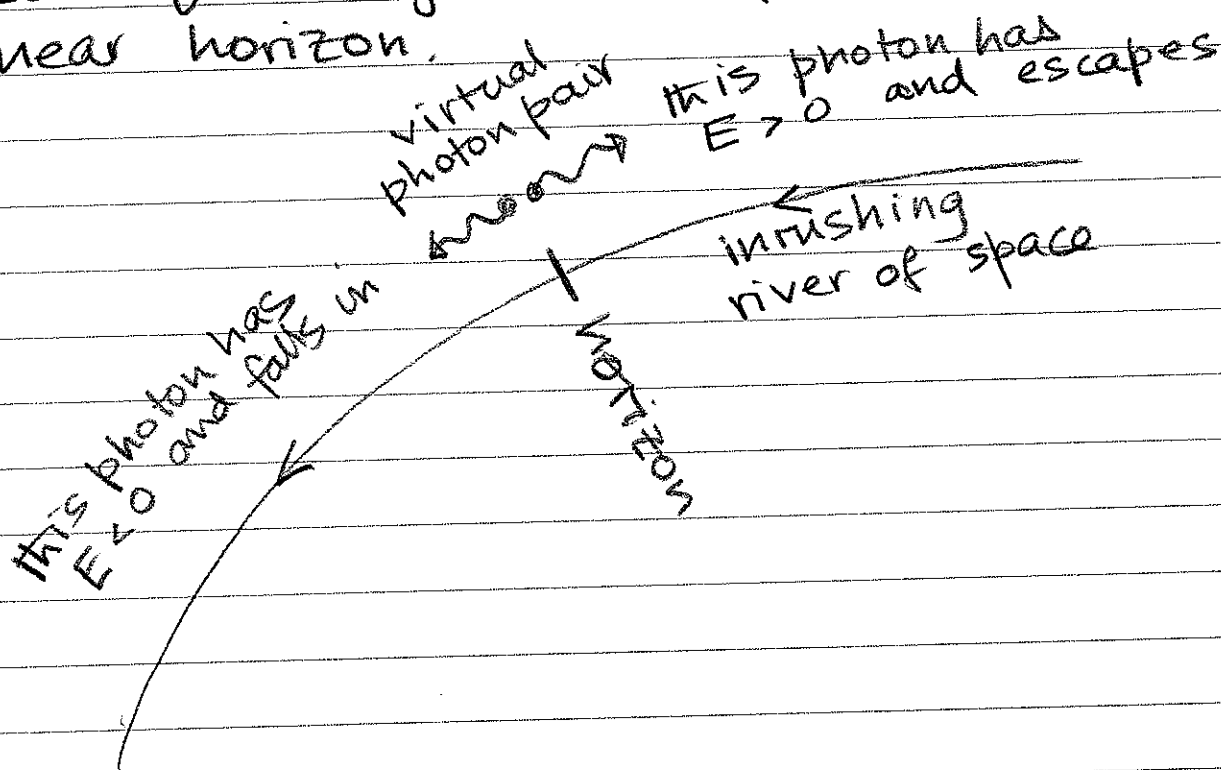 near horizon.
virtual
photon pair
this photon has
E > 0 and escapes
inrushing
river of space
horizon
this photon has
E < 0 and falls in